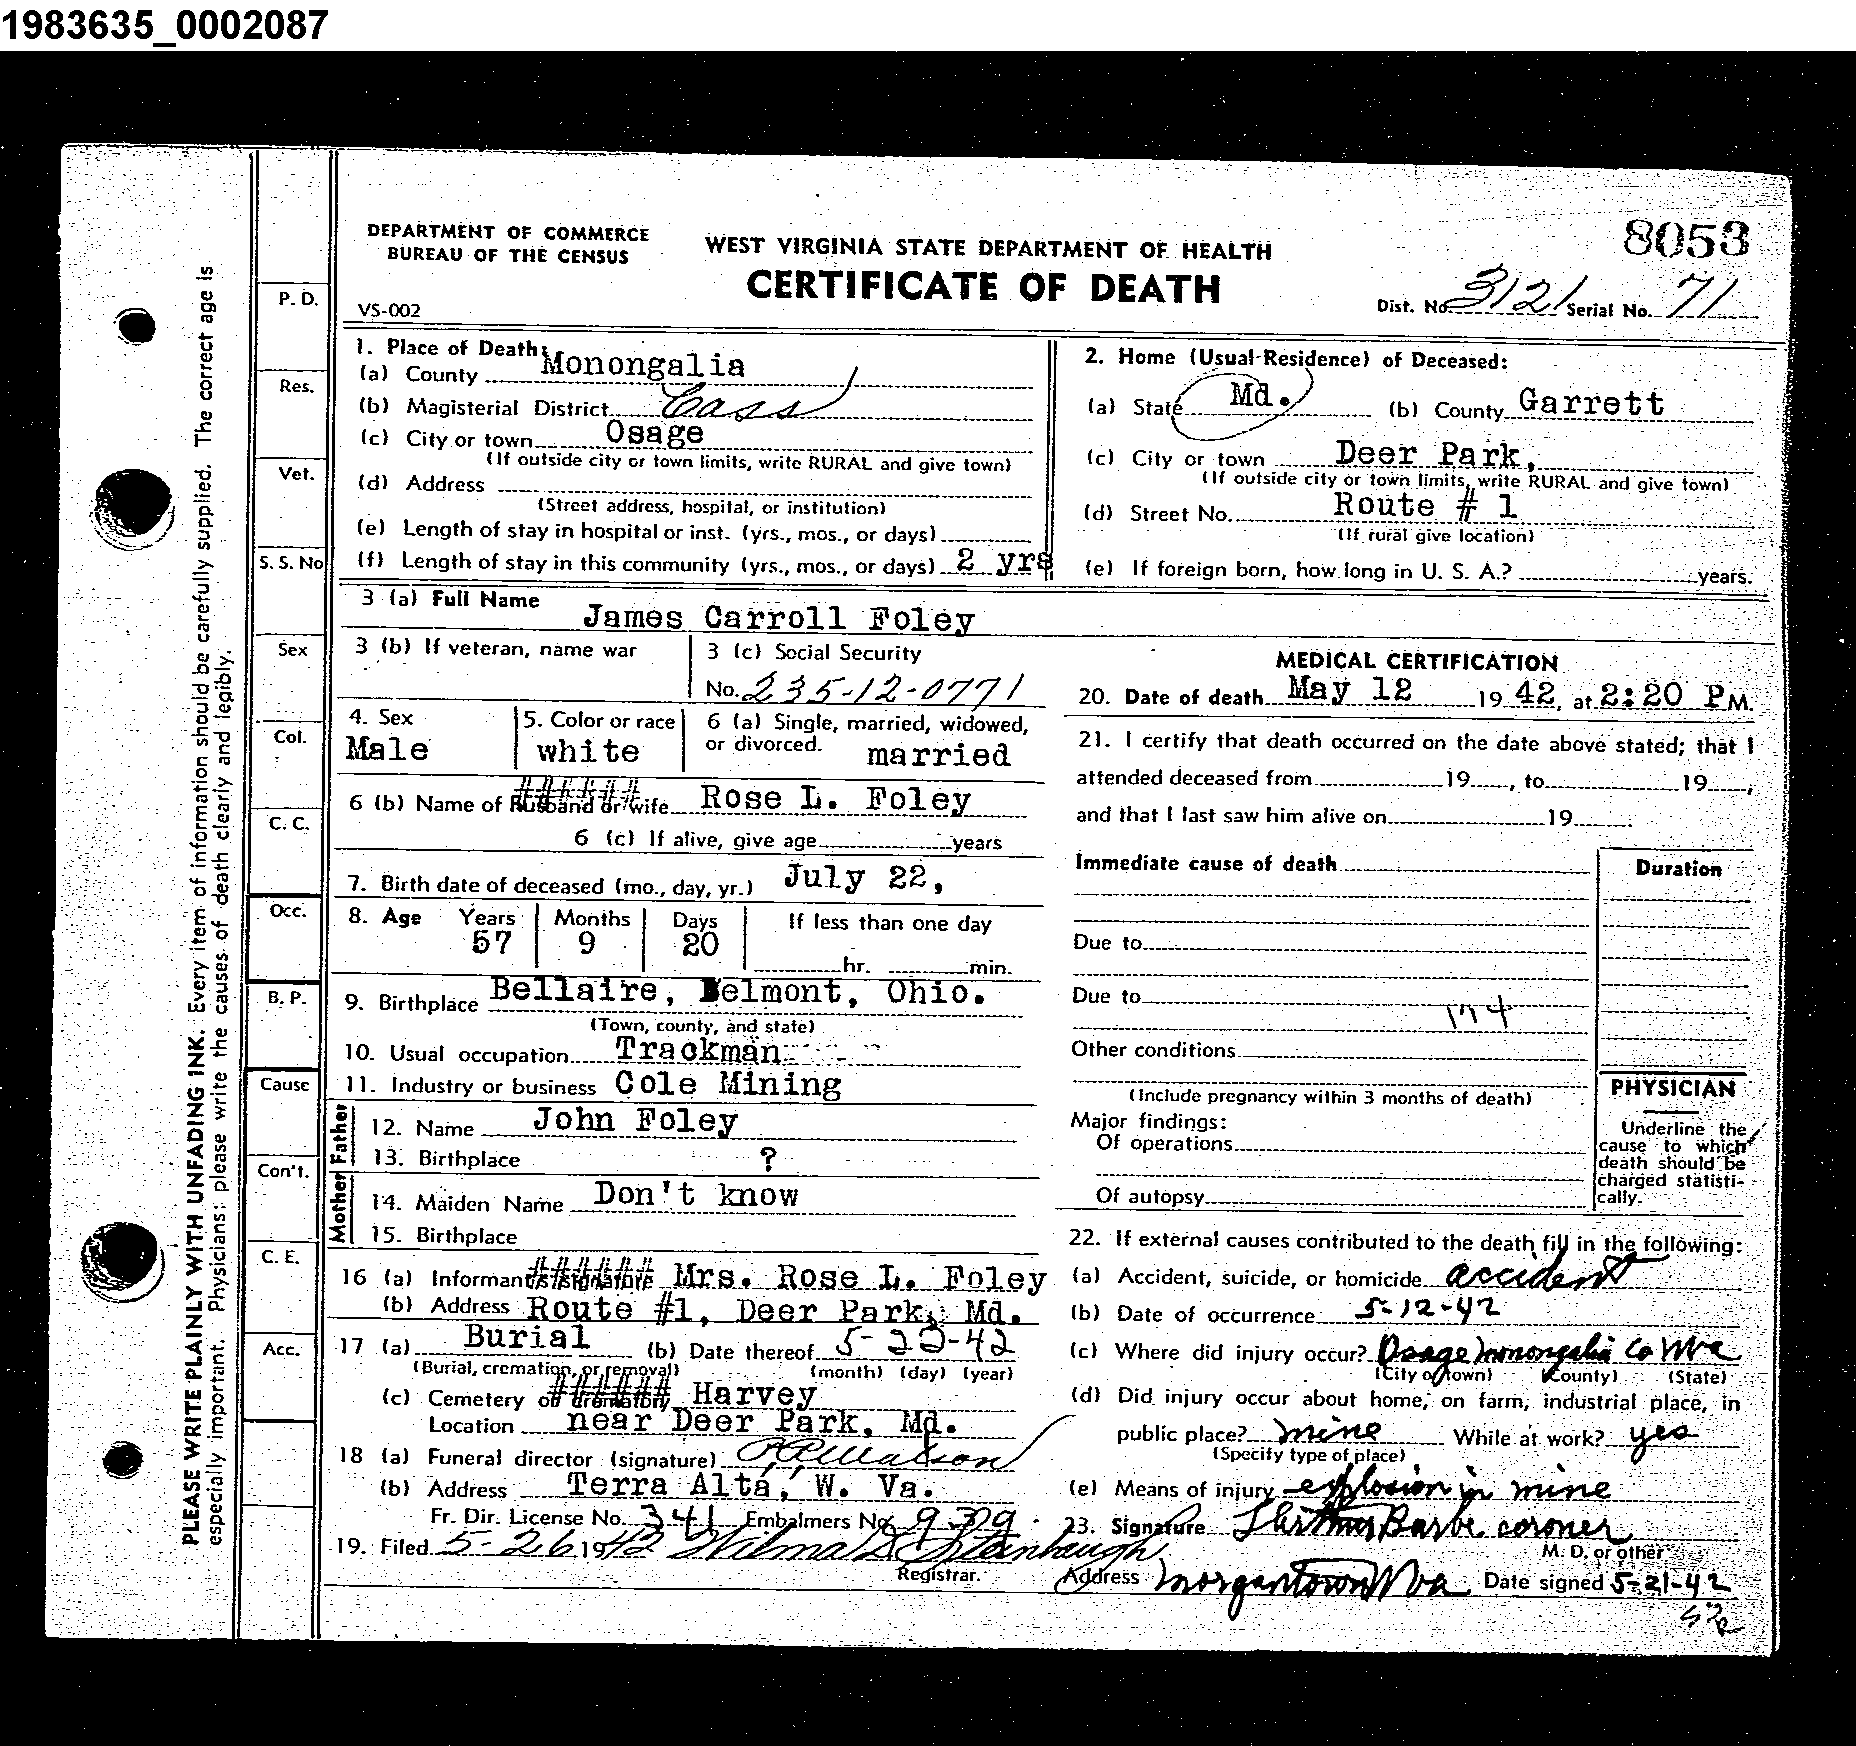 1983635_0002087
PLEASE WRITE PLAINLY WITH UNFADING INK. Every item of information should be carefully supplied. The correct age is
especially important. Physicians: please write the causes of death clearly and legibly.
P. D.
Res.
Vet.
S. S. No
Sex
Col.
C. C.
Occ.
B. P.
Cause
Con't.
C. E.
Acc.
DEPARTMENT OF COMMERCE
BUREAU OF THE CENSUS
VS-002
WEST VIRGINIA STATE DEPARTMENT OF HEALTH
CERTIFICATE OF DEATH
8053
Dist. No. 3121 Serial No. 71
1. Place of Death:
(a) County Monongalia
(b) Magisterial District Cass
(c) City or town Osage
(If outside city or town limits, write RURAL and give town)
(d) Address
(Street address, hospital, or institution)
(e) Length of stay in hospital or inst. (yrs., mos., or days)
(f) Length of stay in this community (yrs., mos., or days) 2 yrs
2. Home (Usual Residence) of Deceased:
(a) State Md. (b) County Garrett
(c) City or town Deer Park,
(If outside city or town limits, write RURAL and give town)
(d) Street No. Route # 1
(If rural give location)
(e) If foreign born, how long in U. S. A.? years.
3 (a) Full Name James Carroll Foley
3 (b) If veteran, name war
3 (c) Social Security
No. 235-12-0771
4. Sex Male
5. Color or race white
6 (a) Single, married, widowed,
or divorced. married
6 (b) Name of Husband or wife Rose L. Foley
6 (c) If alive, give age years
7. Birth date of deceased (mo., day, yr.) July 22,
8. Age Years Months Days If less than one day
57 9 20
hr. min.
9. Birthplace Bellaire, Belmont, Ohio.
(Town, county, and state)
10. Usual occupation Trackman
11. Industry or business Cole Mining
Father
12. Name John Foley
13. Birthplace ?
Mother
14. Maiden Name Don't know
15. Birthplace
16 (a) Informant's signature Mrs. Rose L. Foley
(b) Address Route #1, Deer Park, Md.
17 (a) Burial (b) Date thereof 5-22-42
(Burial, cremation, or removal) (month) (day) (year)
(c) Cemetery or crematory Harvey
Location near Deer Park, Md.
18 (a) Funeral director (signature) Watson
(b) Address Terra Alta, W. Va.
Fr. Dir. License No. 341 Embalmers No. 939
19. Filed 5-26 1942 Wilma
Registrar.
MEDICAL CERTIFICATION
20. Date of death May 12 1942, at 2:20 P M.
21. I certify that death occurred on the date above stated; that I
attended deceased from 19, to 19,
and that I last saw him alive on 19
Immediate cause of death
Duration
Due to
Due to
174
Other conditions
(Include pregnancy within 3 months of death)
Major findings:
Of operations
Of autopsy
PHYSICIAN
Underline the
cause to which
death should be
charged statisti-
cally.
22. If external causes contributed to the death fill in the following:
(a) Accident, suicide, or homicide accident
(b) Date of occurrence 5-12-42
(c) Where did injury occur? Osage Monongalia Co WVa
(City or town) (County) (State)
(d) Did injury occur about home, on farm, industrial place, in
public place? mine While at work? yes
(Specify type of place)
(e) Means of injury explosion in mine
23. Signature Barbe coroner
M. D. or other
Address Morgantown W Va Date signed 5-21-42